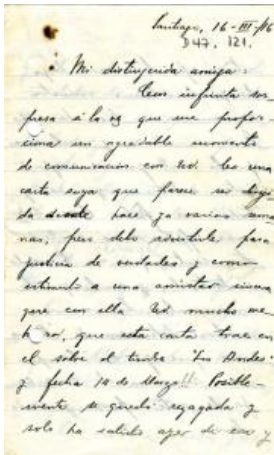 Santiago, 16-III-16
D47. 121.
Mi distinguida amiga:
Con infinita sor
presa á la vez que me propor-
ciona un agradable momento
de comunicación con Ud. leo una
carta suya que parece
da desde hace ya varias sema
nas, pues debo advertirle, para
justicia de verdades y como
estímulo a una amistad sincera
que con ella Ud. mucho me
honró, que esta carta trae en
el sobre el timbre "Los Andes"
y fecha 14 de Marzo!! Posible-
mente se quedó rezagada y
solo ha salido ayer de esa y